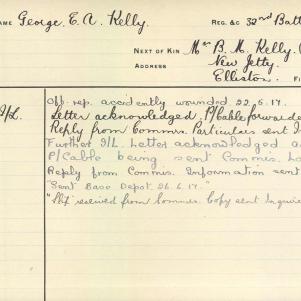 NAME George E. A. Kelly. REG. &c 32nd Batt
NEXT OF KIN Mrs B. M. Kelly.
ADDRESS New Jetty.
Elliston.
Off. rep. accidently wounded 22.6.17.
I/L. Letter acknowledged, P/Cable forwarde
Reply from Commrs. Particulars sent I
Further I/L. Letter acknowledged a
P/Cable being sent Commrs. Lo
Reply from Commrs. Information sent
"Sent Base Depot. 26.6.17."
"Slip" received from Commrs. Copy sent Inquire